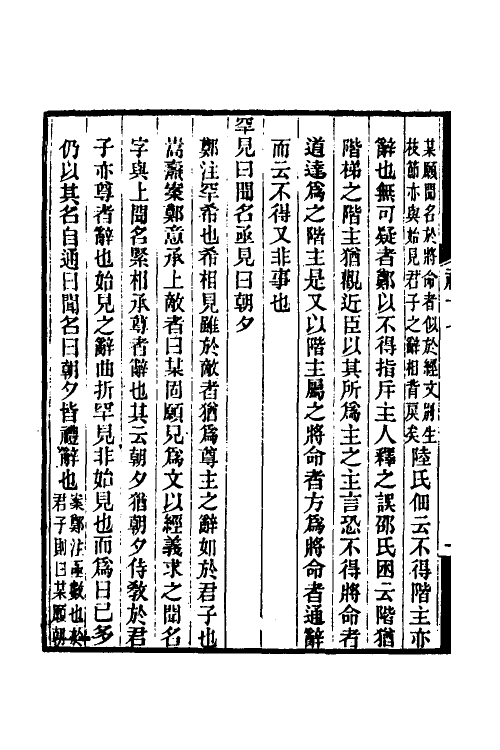 某願聞名於將命者似於經文別生
枝節亦與始見君子之辭相背戾矣陸氏佃云不得階主亦
辭也無可疑者鄭以不得指斥主人釋之誤邵氏囦云階猶
階梯之階主猶觀近臣以其所為主之主言恐不得將命者
道達為之階主是又以階主屬之將命者方為將命者通辭
而云不得又非事也
罕見曰聞名亟見曰朝夕
鄭注罕希也希相見雖於敵者猶為尊主之辭如於君子也
嵩燾案鄭意承上敵者曰某固願見為文以經義求之聞名
字與上聞名緊相承尊者辭也其云朝夕猶朝夕侍敎於君
子亦尊者辭也始見之辭曲折罕見非始見也而為日已多
仍以其名自通曰聞名曰朝夕皆禮辭也案鄭注亟數也於
君子則曰某願朝